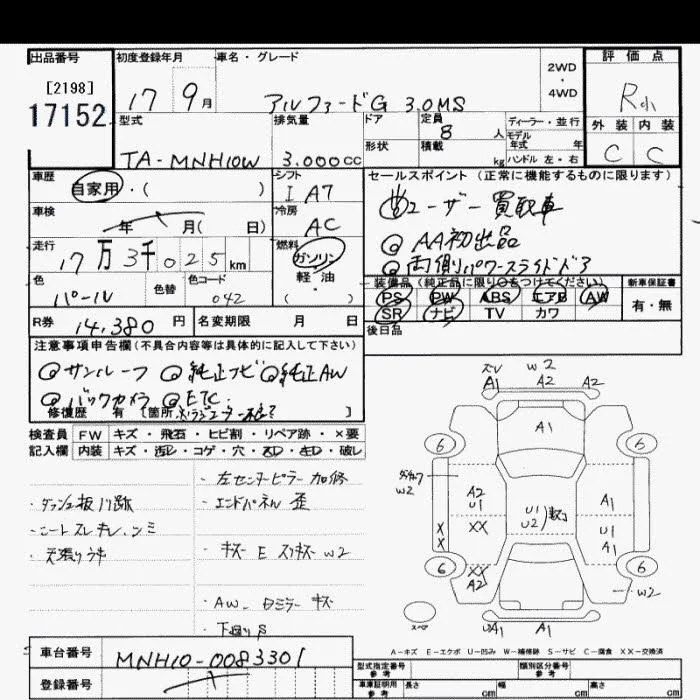 出品番号
[2198]
17152
初度登録年月
17 9月
車名・グレード
アルファードG 3.0MS
2WD
・
4WD
評価点
R小
外装 内装
C C
型式
TA-MNH10W
排気量
3.000cc
ドア
形状
定員
8人
積載
kg
ディーラー・並行
モデル
年式 年
ハンドル 左・右
車歴
自家用・( )
シフト
I A7
セールスポイント (正常に機能するものに限ります)
ユーザー買取車
◎ AA初出品
◎ 両側パワースライドドア
車検
年 月( 日)
冷房
AC
走行
17万3千025km
燃料
ガソリン
軽・油
( )
色
パール
色替
色コード
042
装備品(純正品に限り○をつけてください)
PS PW ABS エアB AW
SR ナビ TV カワ
新車保証書
有・無
R券 14,380円
名変期限 月 日
後日品
注意事項申告欄(不具合内容等は具体的に記入して下さい)
◎サンルーフ ◎純正ナビ ◎純正AW
◎バックカメラ ◎ETC
修復歴 有 [箇所 ]
検査員 FW キズ・飛石・ヒビ割・リペア跡・×要
記入欄 内装 キズ・汚レ・コゲ・穴・・・破レ
・左センターピラー 加修
・ダッシュ板 跡
・エンドパネル 歪
・シートスレ キレ、シミ
・天張りウキ
・キズ E スリキズ W2
・AW_ ミラー キズ
・下廻りS
A1 W2 A2 A2
A1
6 6
W2
A2 U1
U1 U2
A1
X X
XX
U1 A1
6 6
XX A2
W2
スペア
A1 A1
A-キズ E-エクボ U-凹み W-補修跡 S-サビ C-腐食 XX-交換済
車台番号
MNH10-0083301
登録番号
型式指定番号
参考
類別区分番号
参考
車庫証明用
参考
長さ cm
幅 cm
高さ cm